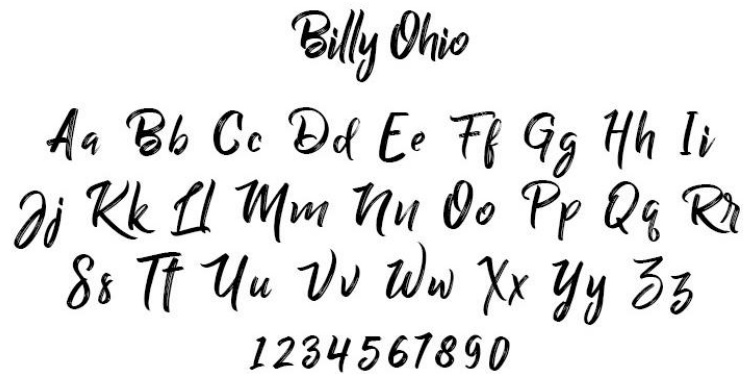 Billy Ohio
Aa Bb Cc Dd Ee Ff Gg Hh Ii
Jj Kk Ll Mm Nn Oo Pp Qq Rr
Ss Tt Uu Vv Ww Xx Yy Zz
1234567890